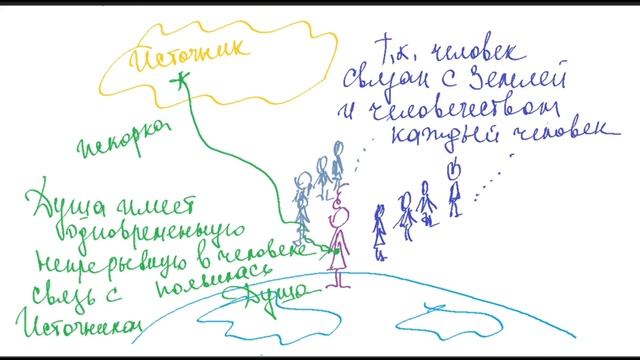 Источник
искорка
Т.к. человек
связан с Землей
и человечеством
каждый человек
Душа имеет
одновременную
непрерывную
связь с
Источником
в человеке
появилась
Душа